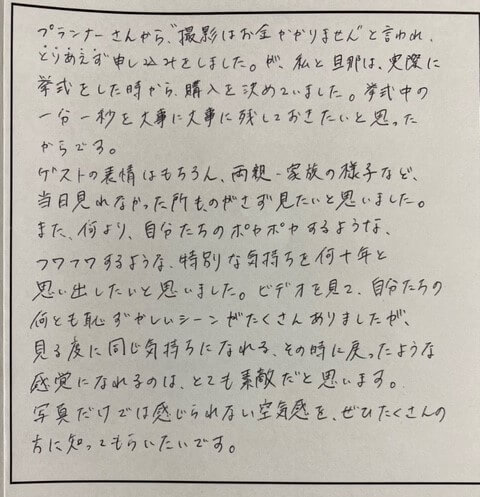 プランナーさんから、"撮影はお金かかりません"と言われ、
とりあえず申し込みをしました。が、私と旦那は、実際に
挙式をした時から、購入を決めていました。挙式中の
一分一秒を大事に大事に残しておきたいと思った
からです。
ゲストの表情はもちろん、両親・家族の様子など、
当日見れなかった所ものがさず見たいと思いました。
また、何より、自分たちのポカポカするような、
フワフワするような、特別な気持ちを何十年と
思い出したいと思いました。ビデオを見て、自分たちの
何とも恥ずかしいシーンがたくさんありましたが、
見る度に同じ気持ちになれる、その時に戻ったような
感覚になれるのは、とても素敵だと思います。
写真だけでは感じられない空気感を、ぜひたくさんの
方に知ってもらいたいです。